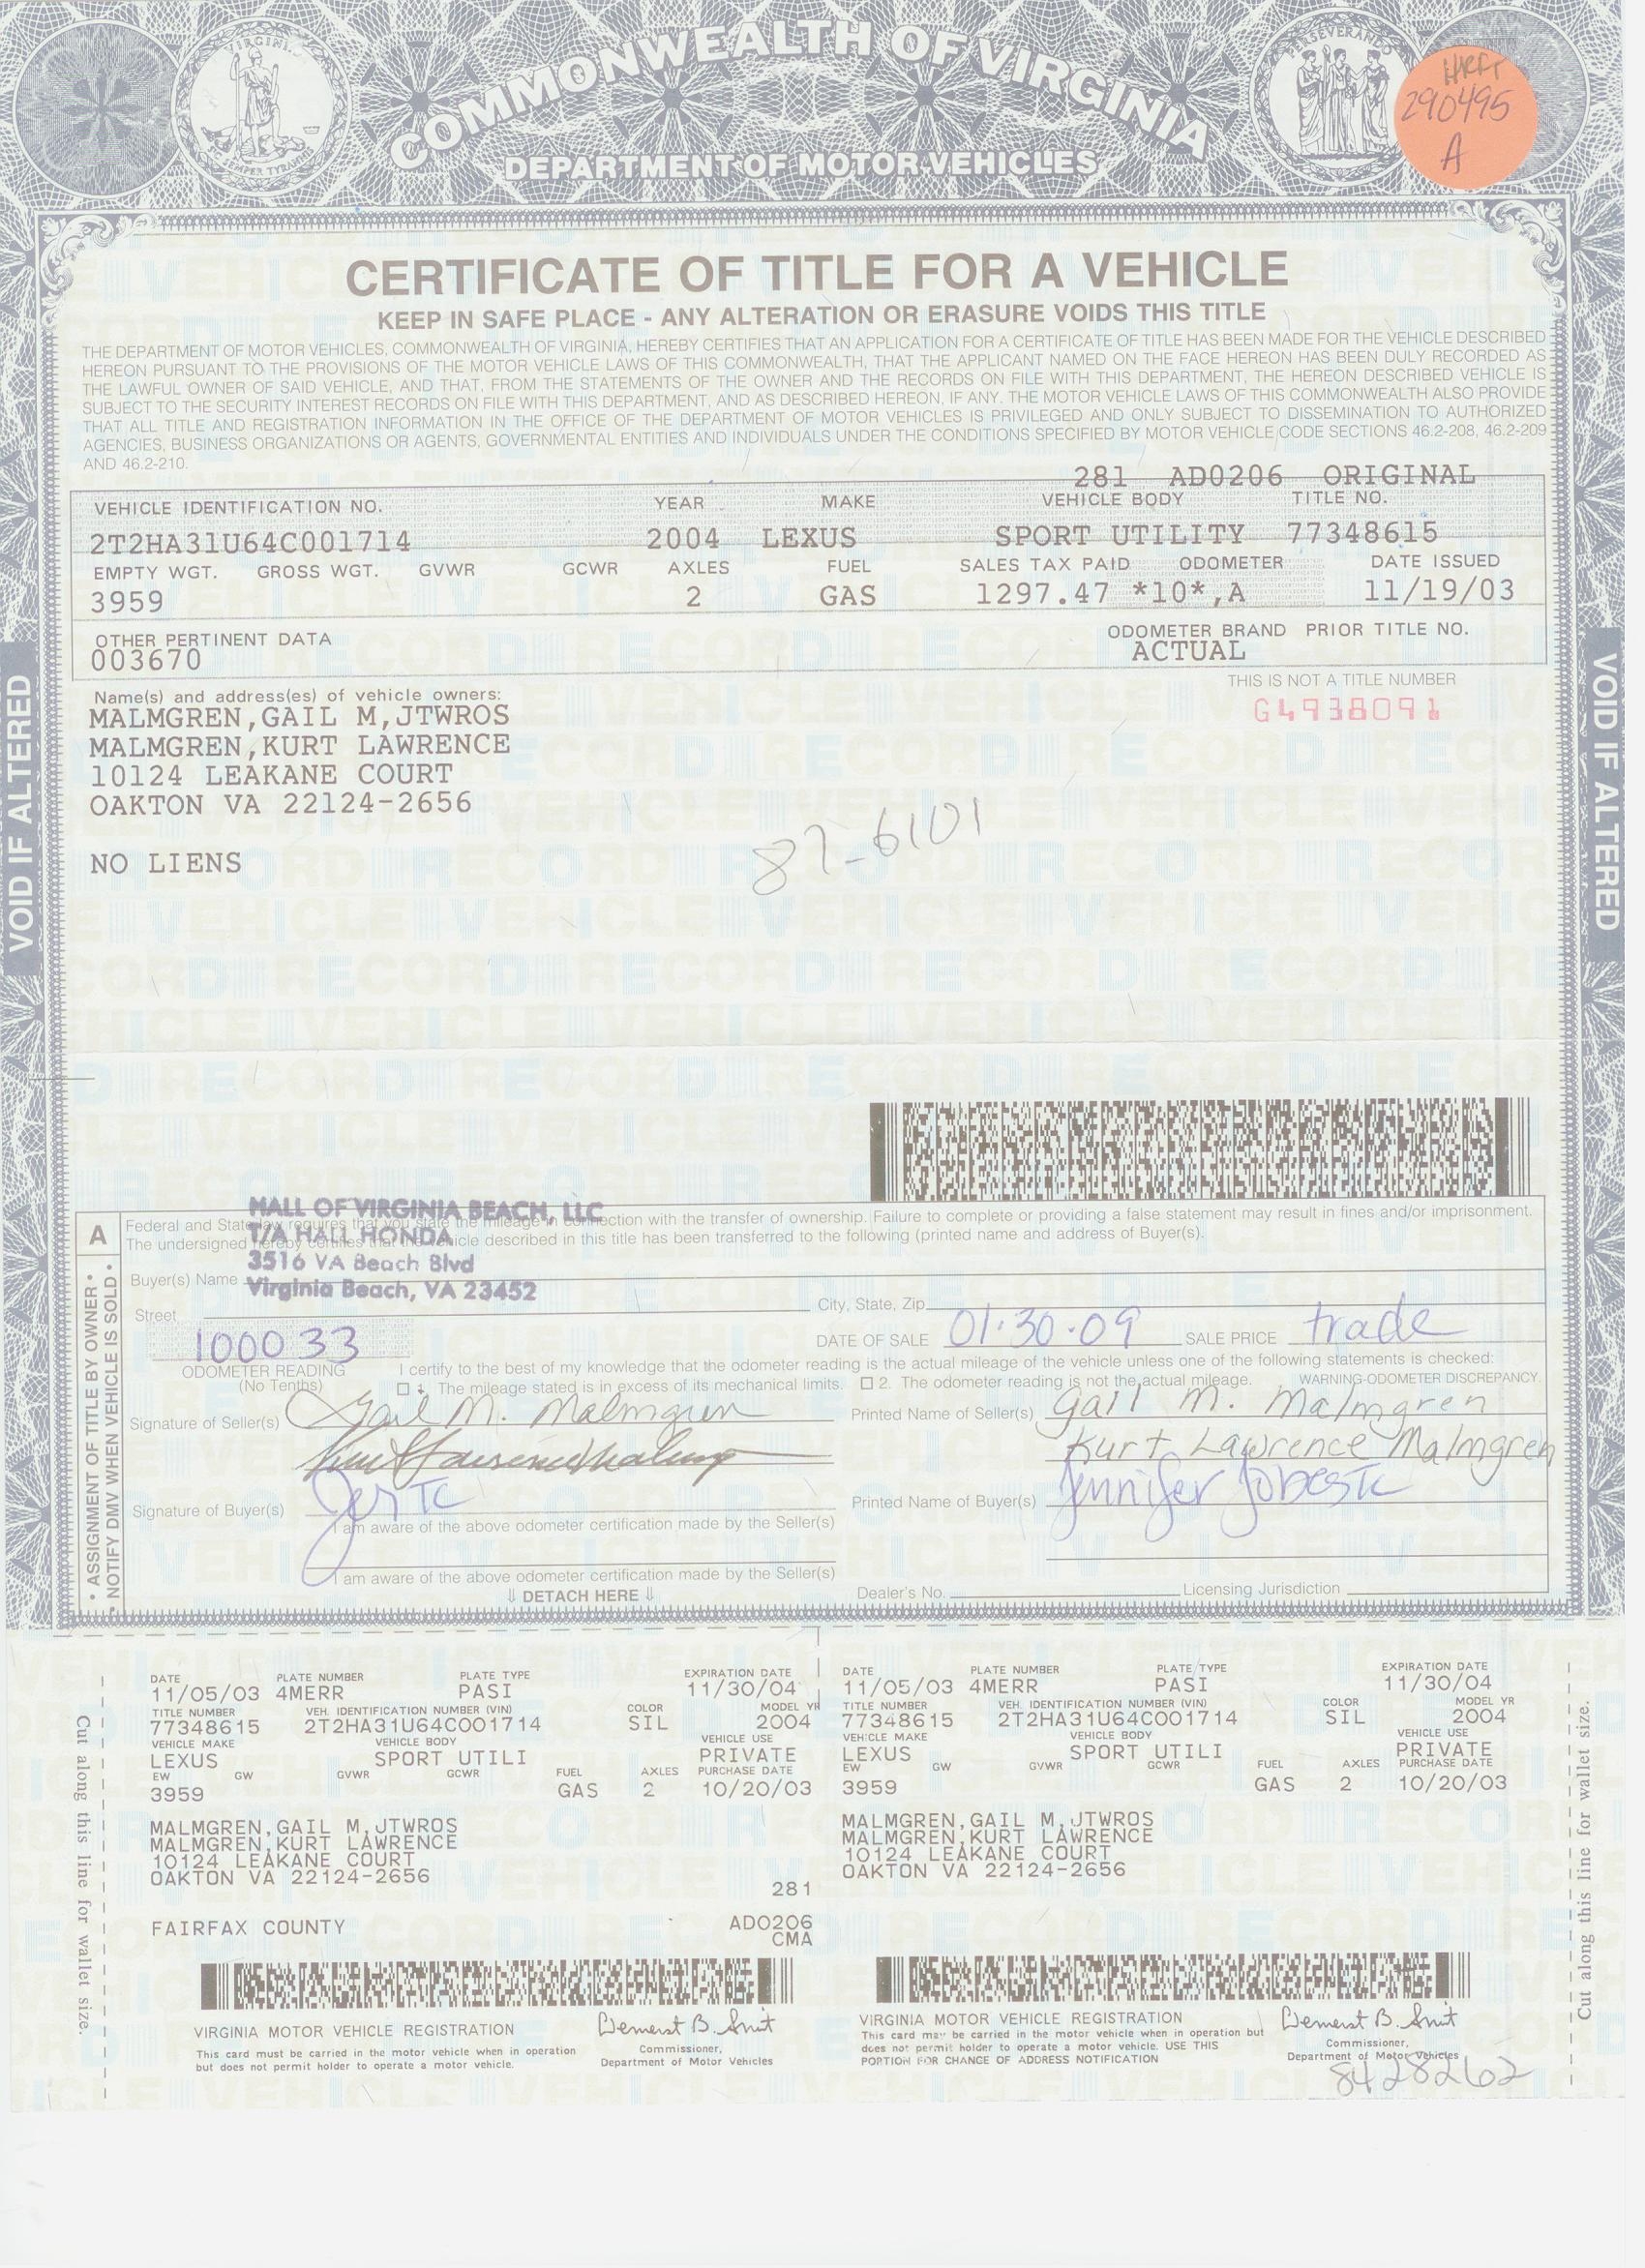 COMMONWEALTH OF VIRGINIA
DEPARTMENT OF MOTOR VEHICLES
290495
A
CERTIFICATE OF TITLE FOR A VEHICLE
KEEP IN SAFE PLACE - ANY ALTERATION OR ERASURE VOIDS THIS TITLE
THE DEPARTMENT OF MOTOR VEHICLES, COMMONWEALTH OF VIRGINIA, HEREBY CERTIFIES THAT AN APPLICATION FOR A CERTIFICATE OF TITLE HAS BEEN MADE FOR THE VEHICLE DESCRIBED
HEREON PURSUANT TO THE PROVISIONS OF THE MOTOR VEHICLE LAWS OF THIS COMMONWEALTH, THAT THE APPLICANT NAMED ON THE FACE HEREON HAS BEEN DULY RECORDED AS
THE LAWFUL OWNER OF SAID VEHICLE, AND THAT, FROM THE STATEMENTS OF THE OWNER AND THE RECORDS ON FILE WITH THIS DEPARTMENT, THE HEREON DESCRIBED VEHICLE IS
SUBJECT TO THE SECURITY INTEREST RECORDS ON FILE WITH THIS DEPARTMENT, AND AS DESCRIBED HEREON, IF ANY. THE MOTOR VEHICLE LAWS OF THIS COMMONWEALTH ALSO PROVIDE
THAT ALL TITLE AND REGISTRATION INFORMATION IN THE OFFICE OF THE DEPARTMENT OF MOTOR VEHICLES IS PRIVILEGED AND ONLY SUBJECT TO DISSEMINATION TO AUTHORIZED
AGENCIES, BUSINESS ORGANIZATIONS OR AGENTS, GOVERNMENTAL ENTITIES AND INDIVIDUALS UNDER THE CONDITIONS SPECIFIED BY MOTOR VEHICLE CODE SECTIONS 46.2-208, 46.2-209
AND 46.2-210.
281 AD0206 ORIGINAL
VEHICLE IDENTIFICATION NO. YEAR MAKE VEHICLE BODY TITLE NO.
2T2HA31U64C001714 2004 LEXUS SPORT UTILITY 77348615
EMPTY WGT. GROSS WGT. GVWR GCWR AXLES FUEL SALES TAX PAID ODOMETER DATE ISSUED
3959 2 GAS 1297.47 *10*,A 11/19/03
OTHER PERTINENT DATA ODOMETER BRAND PRIOR TITLE NO.
003670 ACTUAL
THIS IS NOT A TITLE NUMBER
G4938091
Name(s) and address(es) of vehicle owners:
MALMGREN,GAIL M,JTWROS
MALMGREN,KURT LAWRENCE
10124 LEAKANE COURT
OAKTON VA 22124-2656
87-6101
NO LIENS
VOID IF ALTERED
VOID IF ALTERED
HALL OF VIRGINIA BEACH, LLC
T/A HALL HONDA
3516 VA Beach Blvd
Virginia Beach, VA 23452
A
• ASSIGNMENT OF TITLE BY OWNER •
• NOTIFY DMV WHEN VEHICLE IS SOLD •
Federal and State law requires that you state the mileage in connection with the transfer of ownership. Failure to complete or providing a false statement may result in fines and/or imprisonment.
The undersigned hereby certifies that the vehicle described in this title has been transferred to the following (printed name and address of Buyer(s).
Buyer(s) Name
Street City, State, Zip
100033 DATE OF SALE 01·30·09 SALE PRICE trade
ODOMETER READING I certify to the best of my knowledge that the odometer reading is the actual mileage of the vehicle unless one of the following statements is checked:
(No Tenths) ☐ 1. The mileage stated is in excess of its mechanical limits. ☐ 2. The odometer reading is not the actual mileage. WARNING-ODOMETER DISCREPANCY.
Signature of Seller(s) Gail M. Malmgren Printed Name of Seller(s) Gail M. Malmgren
Kurt Lawrence Malmgren
Signature of Buyer(s) Printed Name of Buyer(s) Jennifer
I am aware of the above odometer certification made by the Seller(s)
I am aware of the above odometer certification made by the Seller(s)
⇓ DETACH HERE ⇓ Dealer's No. Licensing Jurisdiction
Cut along this line for wallet size.
DATE PLATE NUMBER PLATE TYPE EXPIRATION DATE
11/05/03 4MERR PASI 11/30/04
TITLE NUMBER VEH. IDENTIFICATION NUMBER (VIN) COLOR MODEL YR
77348615 2T2HA31U64C001714 SIL 2004
VEHICLE MAKE VEHICLE BODY VEHICLE USE
LEXUS SPORT UTILI PRIVATE
EW GW GVWR GCWR FUEL AXLES PURCHASE DATE
3959 GAS 2 10/20/03
MALMGREN,GAIL M,JTWROS
MALMGREN,KURT LAWRENCE
10124 LEAKANE COURT
OAKTON VA 22124-2656
281
FAIRFAX COUNTY AD0206
CMA
VIRGINIA MOTOR VEHICLE REGISTRATION
This card must be carried in the motor vehicle when in operation
but does not permit holder to operate a motor vehicle.
Commissioner,
Department of Motor Vehicles
DATE PLATE NUMBER PLATE TYPE EXPIRATION DATE
11/05/03 4MERR PASI 11/30/04
TITLE NUMBER VEH. IDENTIFICATION NUMBER (VIN) COLOR MODEL YR
77348615 2T2HA31U64C001714 SIL 2004
VEHICLE MAKE VEHICLE BODY VEHICLE USE
LEXUS SPORT UTILI PRIVATE
EW GW GVWR GCWR FUEL AXLES PURCHASE DATE
3959 GAS 2 10/20/03
MALMGREN,GAIL M,JTWROS
MALMGREN,KURT LAWRENCE
10124 LEAKANE COURT
OAKTON VA 22124-2656
VIRGINIA MOTOR VEHICLE REGISTRATION
This card may be carried in the motor vehicle when in operation but
does not permit holder to operate a motor vehicle. USE THIS
PORTION FOR CHANGE OF ADDRESS NOTIFICATION
Commissioner,
Department of Motor Vehicles
84282662
Cut along this line for wallet size.